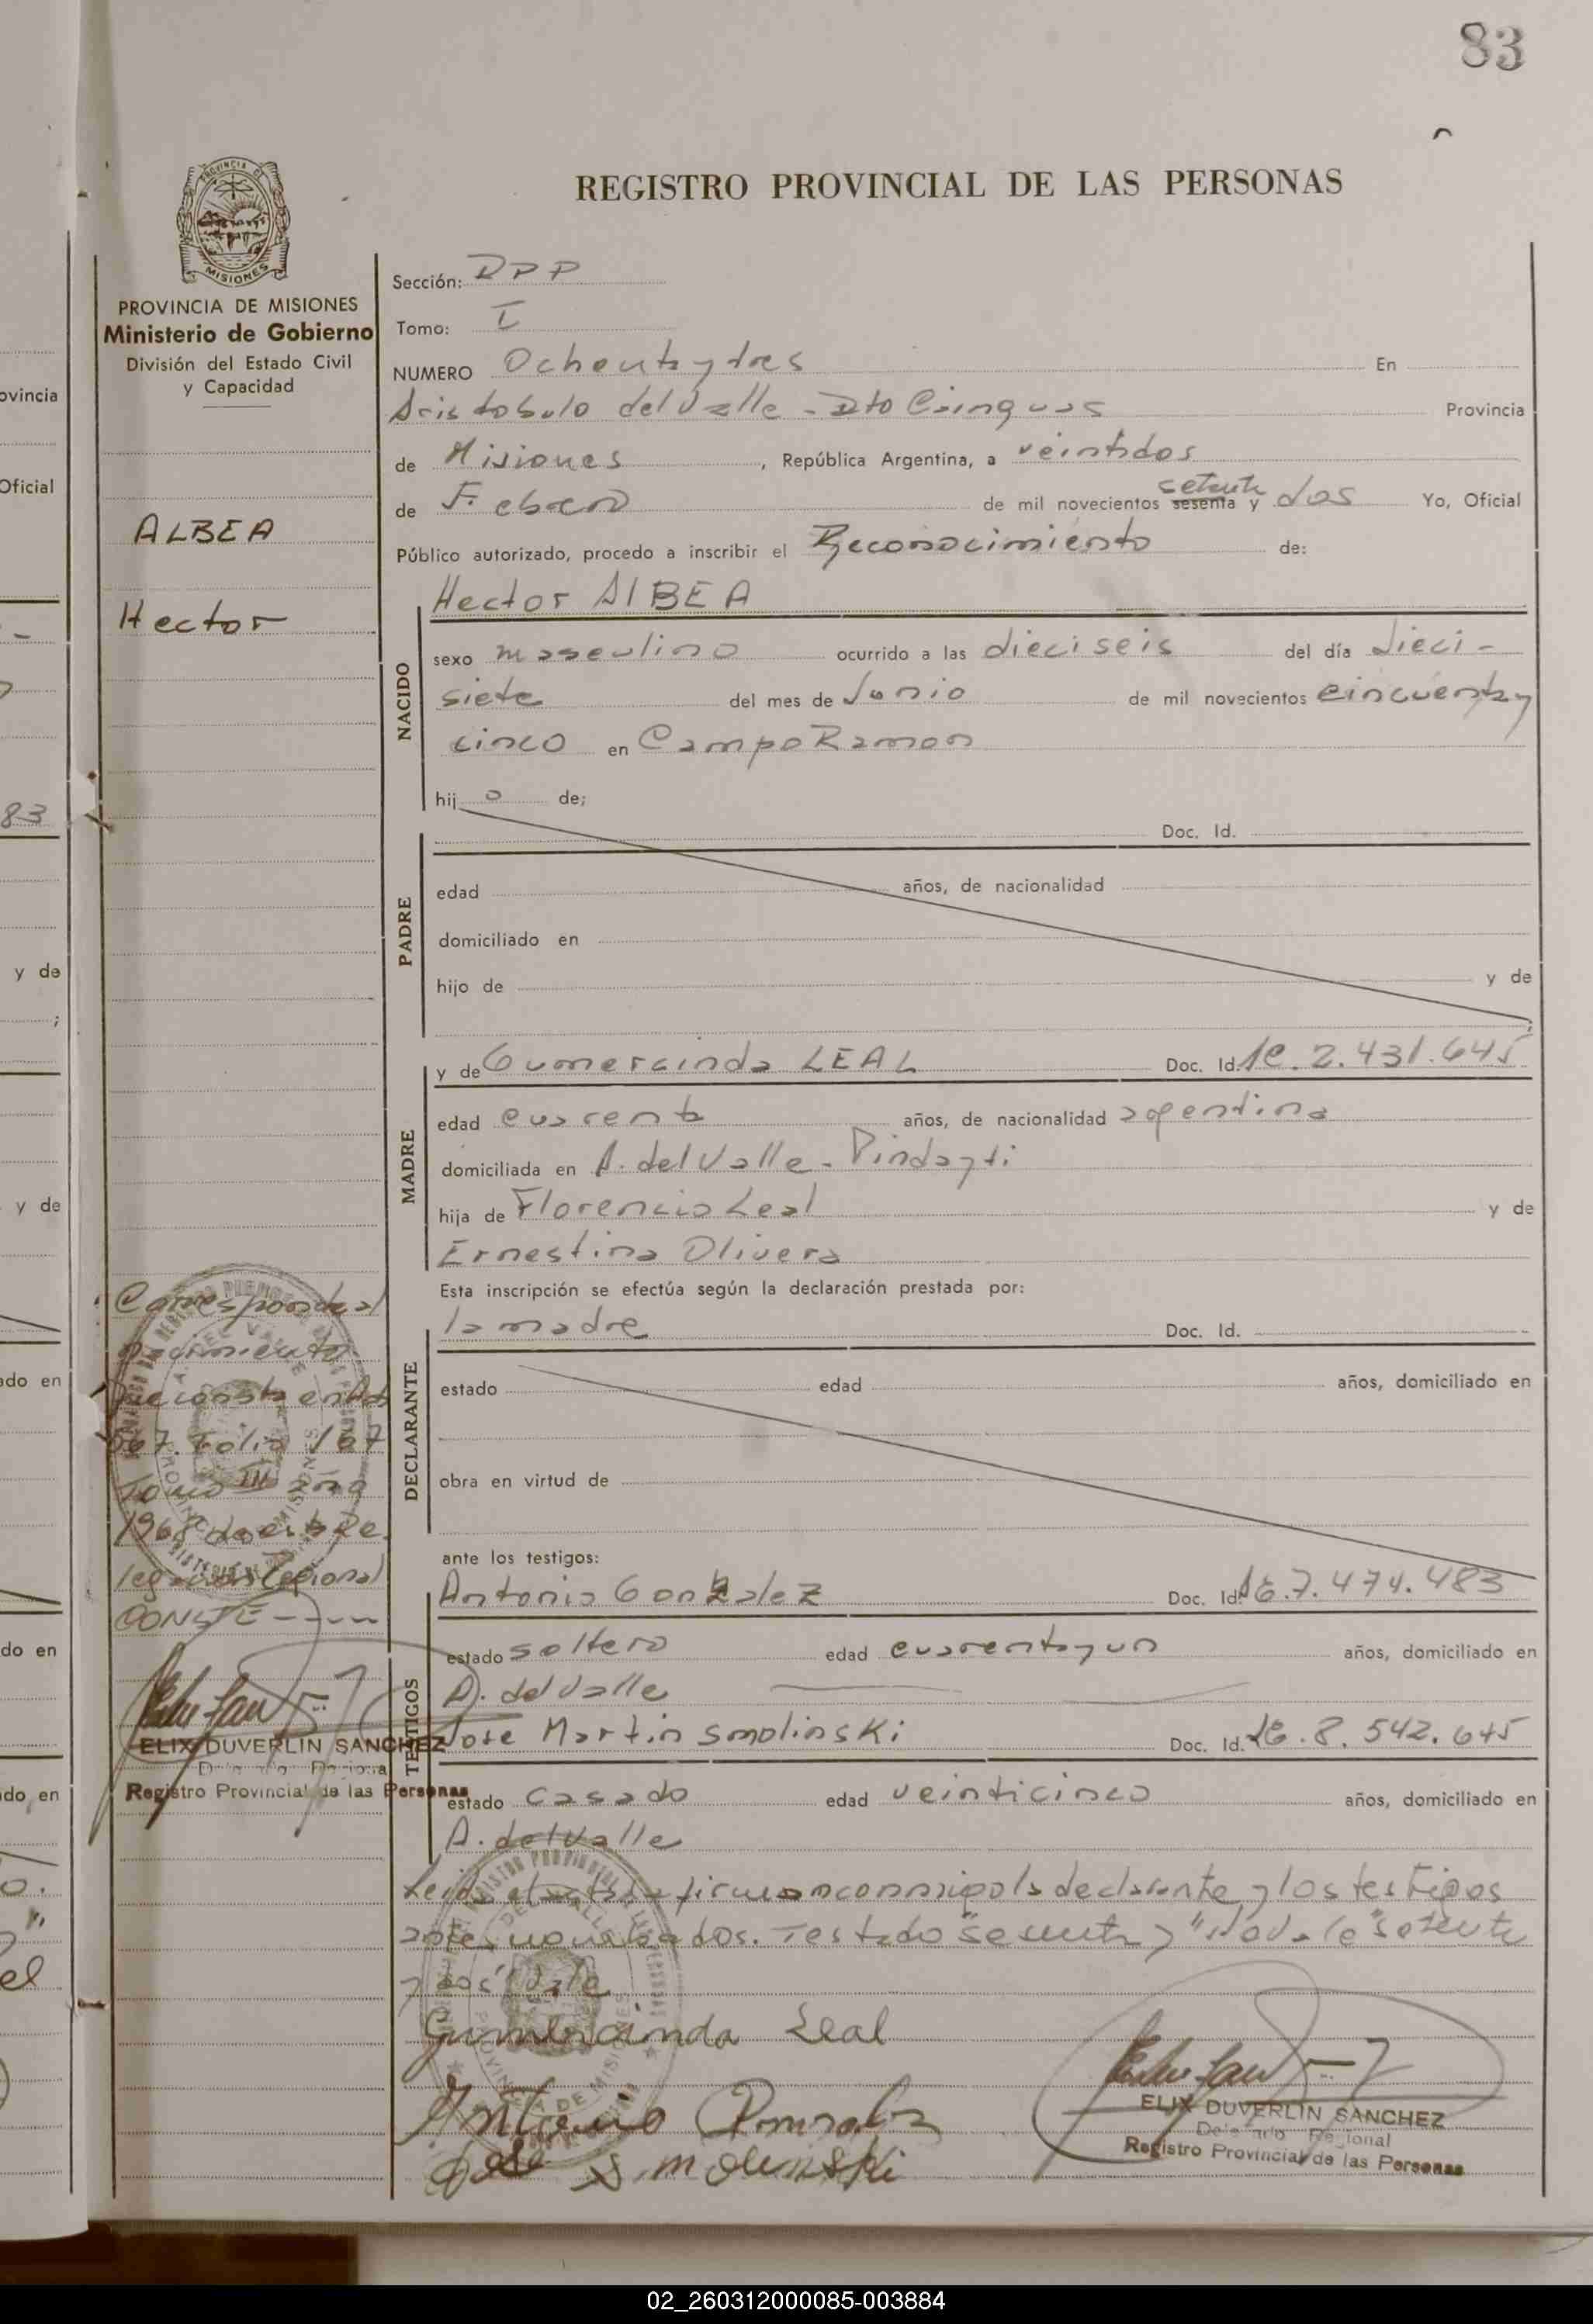 83
REGISTRO PROVINCIAL DE LAS PERSONAS
PROVINCIA DE
MISIONES
PROVINCIA DE MISIONES
Ministerio de Gobierno
División del Estado Civil
y Capacidad
ALBEA
Hector
Sección: RPP
Tomo: I
NUMERO Ochenta y tres En
Aristobulo del Valle - Dto Cainguas Provincia
de Misiones, República Argentina, a veintidos
de Febrero de mil novecientos sesenta y setenta dos Yo, Oficial
Público autorizado, procedo a inscribir el Reconocimiento de:
NACIDO
Hector ALBEA
sexo masculino ocurrido a las dieciseis del día dieci-
siete del mes de Junio de mil novecientos cincuenta y
cinco en Campo Ramon
hijo de;
PADRE
Doc. Id.
edad años, de nacionalidad
domiciliado en
hijo de y de
MADRE
y de Gumercinda LEAL Doc. Id. LC. 2.431.645
edad cuarenta años, de nacionalidad agentina
domiciliada en A. del Valle - Pindayti
hija de Florencio Leal y de
Ernestina Olivera
Esta inscripción se efectúa según la declaración prestada por:
DECLARANTE
la madre Doc. Id.
estado edad años, domiciliado en
obra en virtud de
ante los testigos:
TESTIGOS
Antonio Gonzalez Doc. Id. LE. 7.474.483
estado soltero edad cuarenta y un años, domiciliado en
A. del Valle
Jose Martin Smolinski Doc. Id. LE. 8.542.645
estado casado edad veinticinco años, domiciliado en
A. del Valle
Leida el acta la firman conmigo la declarante y los testigos
antes nombrados. Testado "sesenta y" "setenta
y dos" Vale
Gumercinda Leal
Antonio Gonzalez
Jose Smolinski
ELIX DUVERLIN SANCHEZ
Delegado Regional
Registro Provincial de las Personas
Corresponde al
Nacimiento
que consta en Acta
567. Folio 167
Tomo III año
1968 de esta De
legacion Regional
CONSTE ----
ELIX DUVERLIN SANCHEZ
Delegado Regional
Registro Provincial de las Personas
ovincia
Oficial
83
y de
y de
ado en
do en
do en
02_260312000085-003884